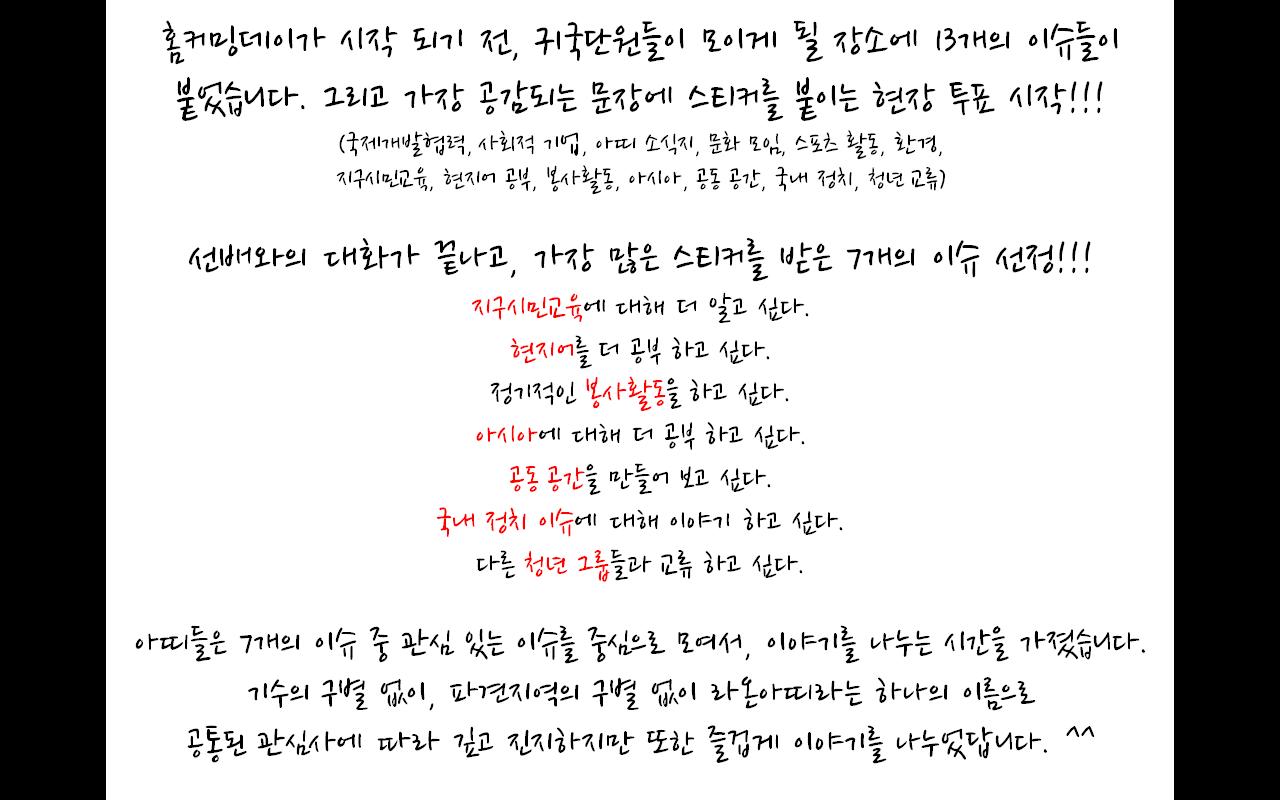 홈커밍데이가 시작 되기 전, 귀국단원들이 모이게 될 장소에 13개의 이슈들이
붙었습니다. 그리고 가장 공감되는 문장에 스티커를 붙이는 현장 투표 시작!!!
(국제개발협력, 사회적 기업, 아띠 소식지, 문화 모임, 스포츠 활동, 환경,
지구시민교육, 현지어 공부, 봉사활동, 아시아, 공동 공간, 국내 정치, 청년 교류)
선배와의 대화가 끝나고, 가장 많은 스티커를 받은 7개의 이슈 선정!!!
지구시민교육에 대해 더 알고 싶다.
현지어를 더 공부 하고 싶다.
정기적인 봉사활동을 하고 싶다.
아시아에 대해 더 공부 하고 싶다.
공동 공간을 만들어 보고 싶다.
국내 정치 이슈에 대해 이야기 하고 싶다.
다른 청년 그룹들과 교류 하고 싶다.
아띠들은 7개의 이슈 중 관심 있는 이슈를 중심으로 모여서, 이야기를 나누는 시간을 가졌습니다.
기수의 구별 없이, 파견지역의 구별 없이 라온아띠라는 하나의 이름으로
공통된 관심사에 따라 깊고 진지하지만 또한 즐겁게 이야기를 나누었답니다. ^^